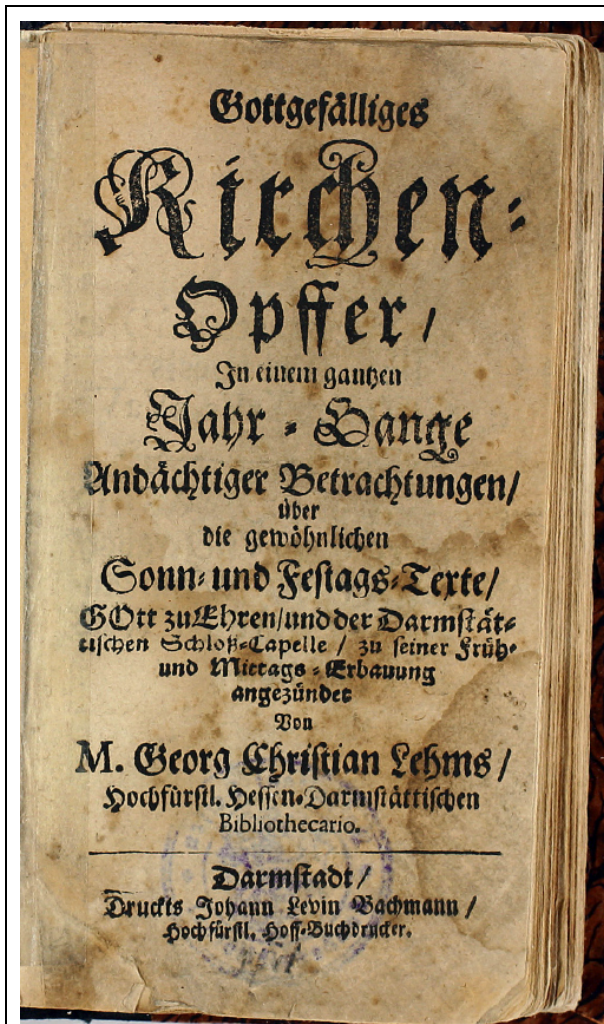 Gottgefälliges
Kirchen-
Opffer/
In einem gantzen
Jahr-Gange
Andächtiger Betrachtungen/
über
die gewöhnlichen
Sonn- und Festags-Texte/
GOtt zu Ehren/und der Darmstät-
tischen Schloß-Capelle / zu seiner Früh-
und Mittags-Erbauung
angezündet
Von
M. Georg Christian Lehms /
Hochfürstl. Hessen-Darmstättischen
Bibliothecario.
Darmstadt/
Druckts Johann Levin Bachmann /
Hochfürstl. Hoff-Buchdrucker.